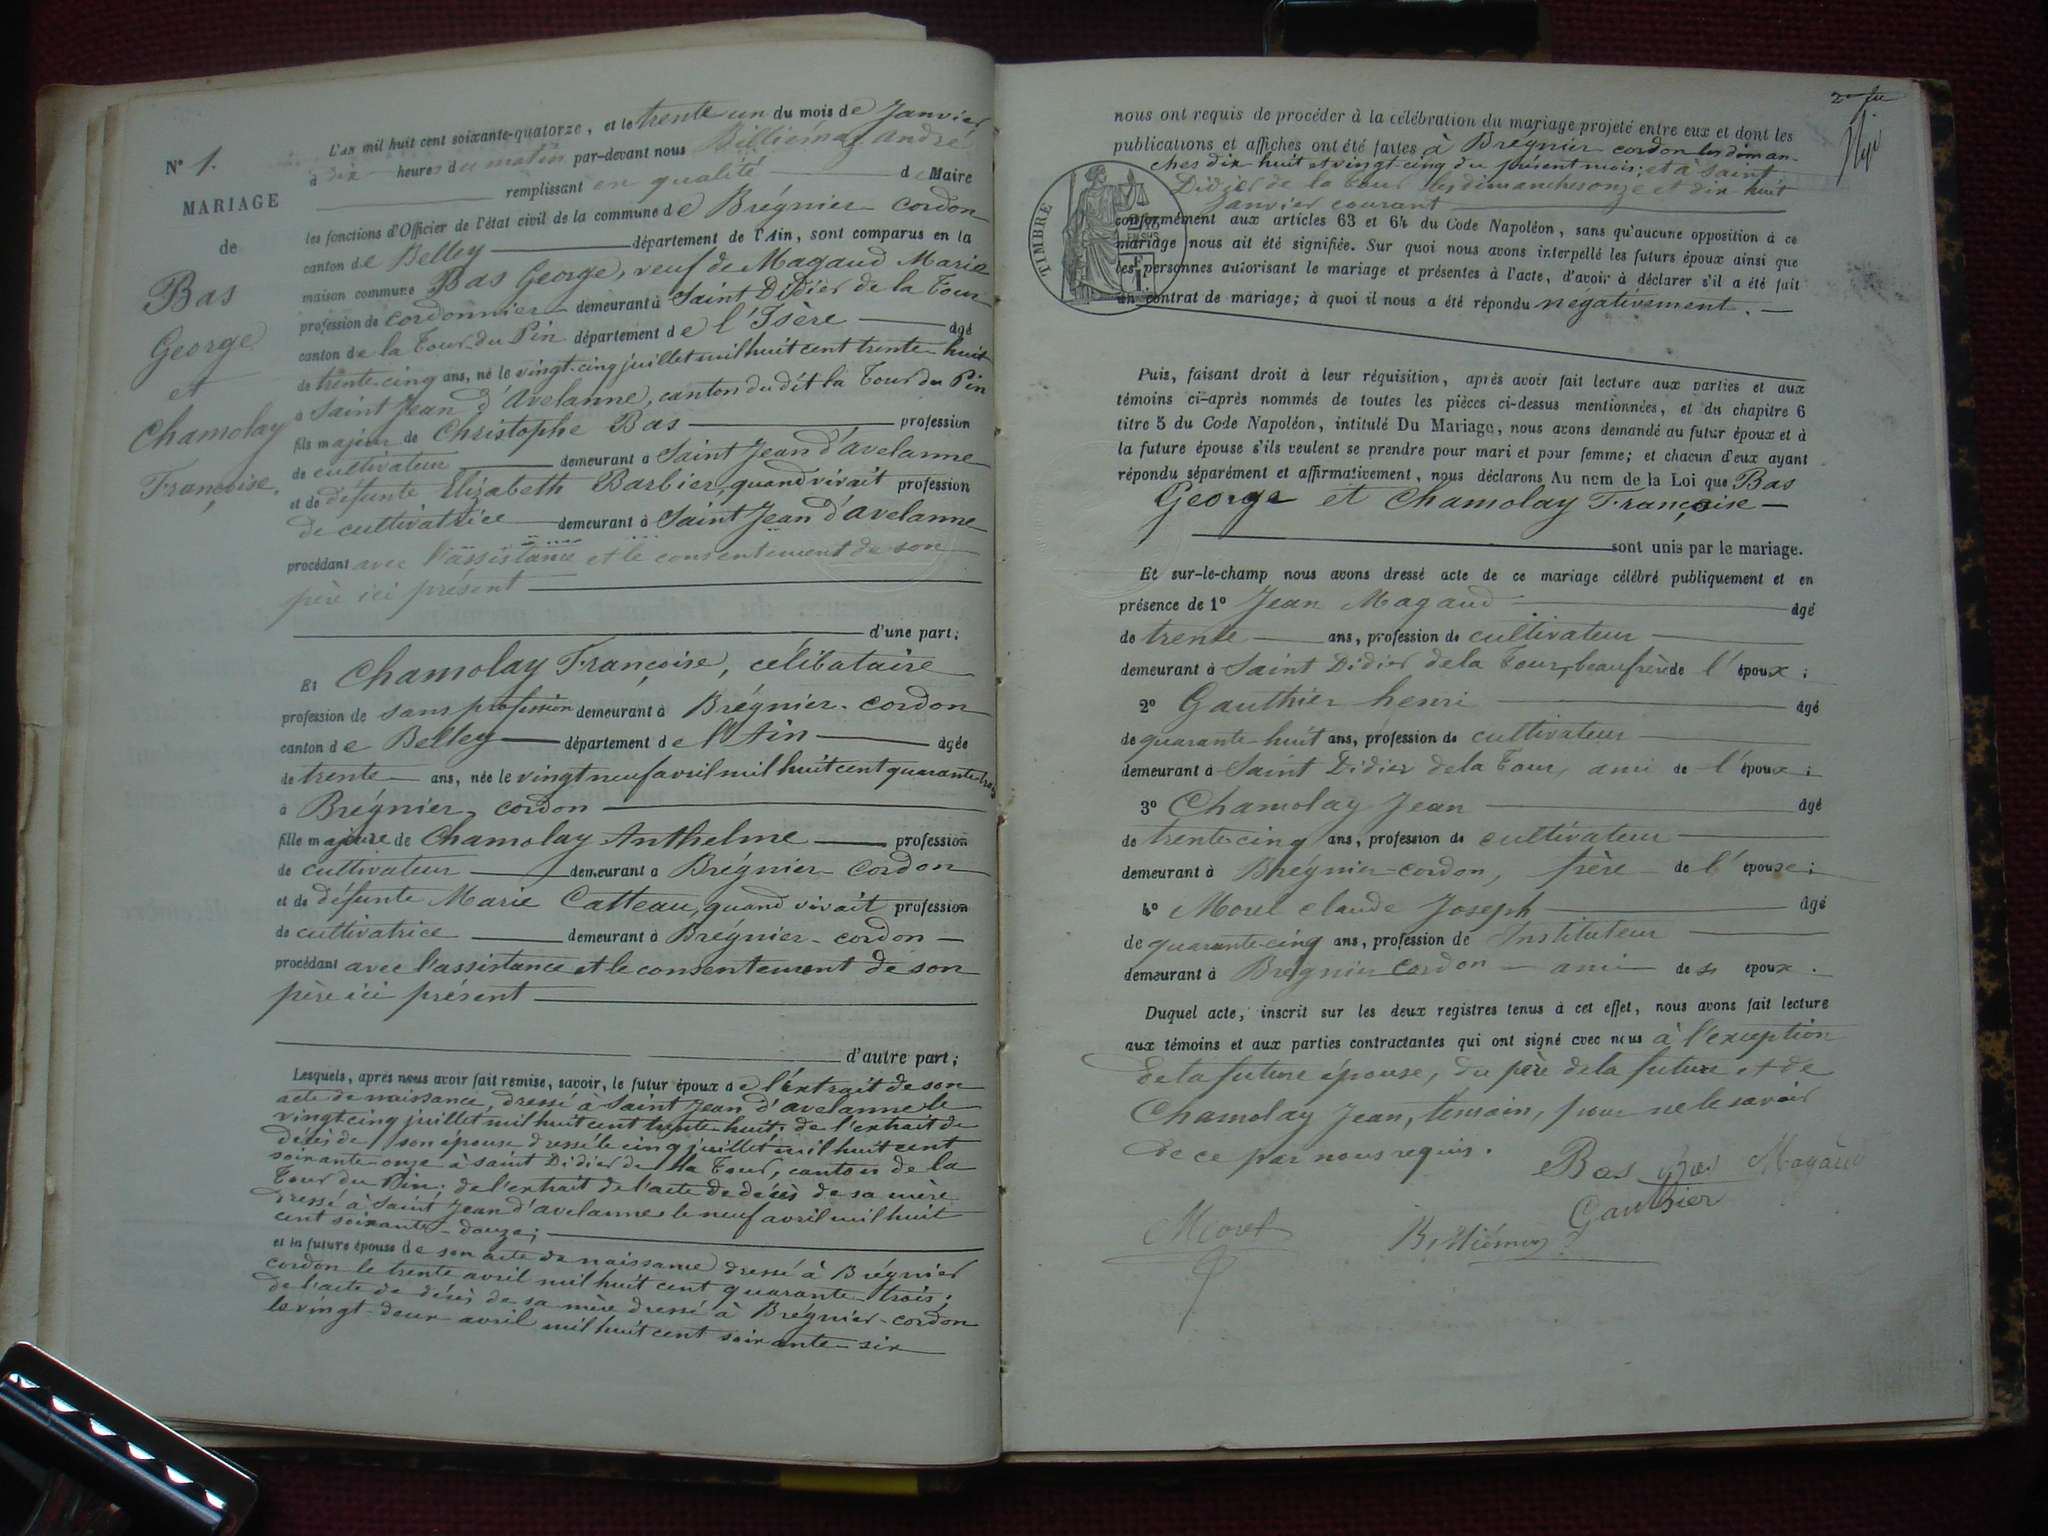 N° 1.
MARIAGE
de
Bas
George
et
Chamolay
Françoise.
L'AN mil huit cent soixante-quatorze, et le trente un du mois de Janvier
à dix heures du matin par-devant nous Billiémaz André
remplissant en qualité de Maire
les fonctions d'Officier de l'état civil de la commune de Brégnier-Cordon
canton de Belley département de l'Ain, sont comparus en la
maison commune Bas George, veuf de Magaud Marie
profession de cordonnier demeurant à Saint Didier de la Tour
canton de la Tour-du Pin département de l'Isère âgé
de trente-cinq ans, né le vingt-cinq juillet mil huit cent trente-huit
à Saint Jean d'Avelanne, canton du dit la Tour du Pin
fils majeur de Christophe Bas profession
de cultivateur demeurant à Saint Jean d'avelanne
et de défunte Elizabeth Barbier, quand vivait profession
de cultivatrice demeurant à Saint Jean d'avelanne
procédant avec l'assistance et le consentement de son
père ici présent
d'une part;
Et Chamolay Françoise, célibataire
profession de sans profession demeurant à Brégnier-Cordon
canton de Belley département de l'Ain âgée
de trente ans, née le vingt neuf avril mil huit cent quarante-trois
à Brégnier-cordon
fille majeure de Chamolay Anthelme profession
de cultivateur demeurant à Brégnier-Cordon
et de défunte Marie Catteau, quand vivait profession
de cultivatrice demeurant à Brégnier-cordon
procédant avec l'assistance et le consentement de son
père ici présent
d'autre part;
Lesquels, après nous avoir fait remise, savoir, le futur époux de l'extrait de son
acte de naissance, dressé à Saint Jean d'avelanne le
vingt cinq juillet mil huit cent trente-huit; de l'extrait de
décès de son épouse dressé le cinq juillet mil huit cent
soixante-onze à Saint Didier de la Tour, canton de la
Tour du Pin; de l'extrait de l'acte de décès de sa mère
dressé à Saint Jean d'avelanne le neuf avril mil huit
cent soixante-douze;
et la future épouse de son acte de naissance dressé à Brégnier
cordon le trente avril mil huit cent quarante-trois;
de l'acte de décès de sa mère dressé à Brégnier-cordon
le vingt-deux avril mil huit cent soixante-six
nous ont requis de procéder à la célébration du mariage projeté entre eux et dont les
publications et affiches ont été faites à Brégnier cordon les diman-
ches dix huit et vingt cinq du présent mois; et à Saint
Didier de la Tour les dimanches onze et dix huit
Janvier courant
conformément aux articles 63 et 64 du Code Napoléon, sans qu'aucune opposition à ce
mariage nous ait été signifiée. Sur quoi nous avons interpellé les futurs époux ainsi que
les personnes autorisant le mariage et présentes à l'acte, d'avoir à déclarer s'il a été fait
un contrat de mariage; à quoi il nous a été répondu négativement.
TIMBRE
Puis, faisant droit à leur réquisition, après avoir fait lecture aux parties et aux
témoins ci-après nommés de toutes les pièces ci-dessus mentionnées, et du chapitre 6
titre 5 du Code Napoléon, intitulé Du Mariage, nous avons demandé au futur époux et à
la future épouse s'ils veulent se prendre pour mari et pour femme; et chacun d'eux ayant
répondu séparément et affirmativement, nous déclarons Au nom de la Loi que Bas
George et Chamolay Françoise
sont unis par le mariage.
Et sur-le-champ nous avons dressé acte de ce mariage célébré publiquement et en
présence de 1° Jean Magaud âgé
de trente ans, profession de cultivateur
demeurant à Saint Didier de la Tour, beau frère de l'époux;
2° Gauthier henri âgé
de quarante-huit ans, profession de cultivateur
demeurant à Saint Didier de la Tour, ami de l'époux;
3° Chamolay Jean âgé
de trente cinq ans, profession de cultivateur
demeurant à Brégnier-cordon, frère de l'épouse;
4° Morel Claude Joseph âgé
de quarante-cinq ans, profession de Instituteur
demeurant à Brégnier Cordon ami des époux.
Duquel acte, inscrit sur les deux registres tenus à cet effet, nous avons fait lecture
aux témoins et aux parties contractantes qui ont signé avec nous à l'exception
de la future épouse, du père de la future et de
Chamolay Jean, témoin, pour ne le savoir
de ce par nous requis.
Bas Magaud
Gauthier
Morel Billiémaz